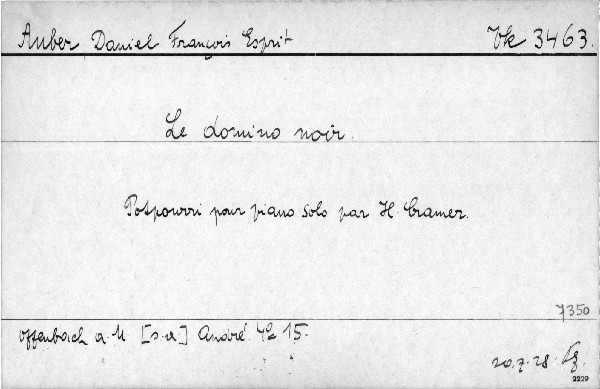 Auber, Daniel François Esprit Vk 3463.
Le domino noir.
Potpourri pour piano solo par H. Cramer.
7350
Offenbach a. M [s. a.] André. 4º 15.
20.7.28
2229